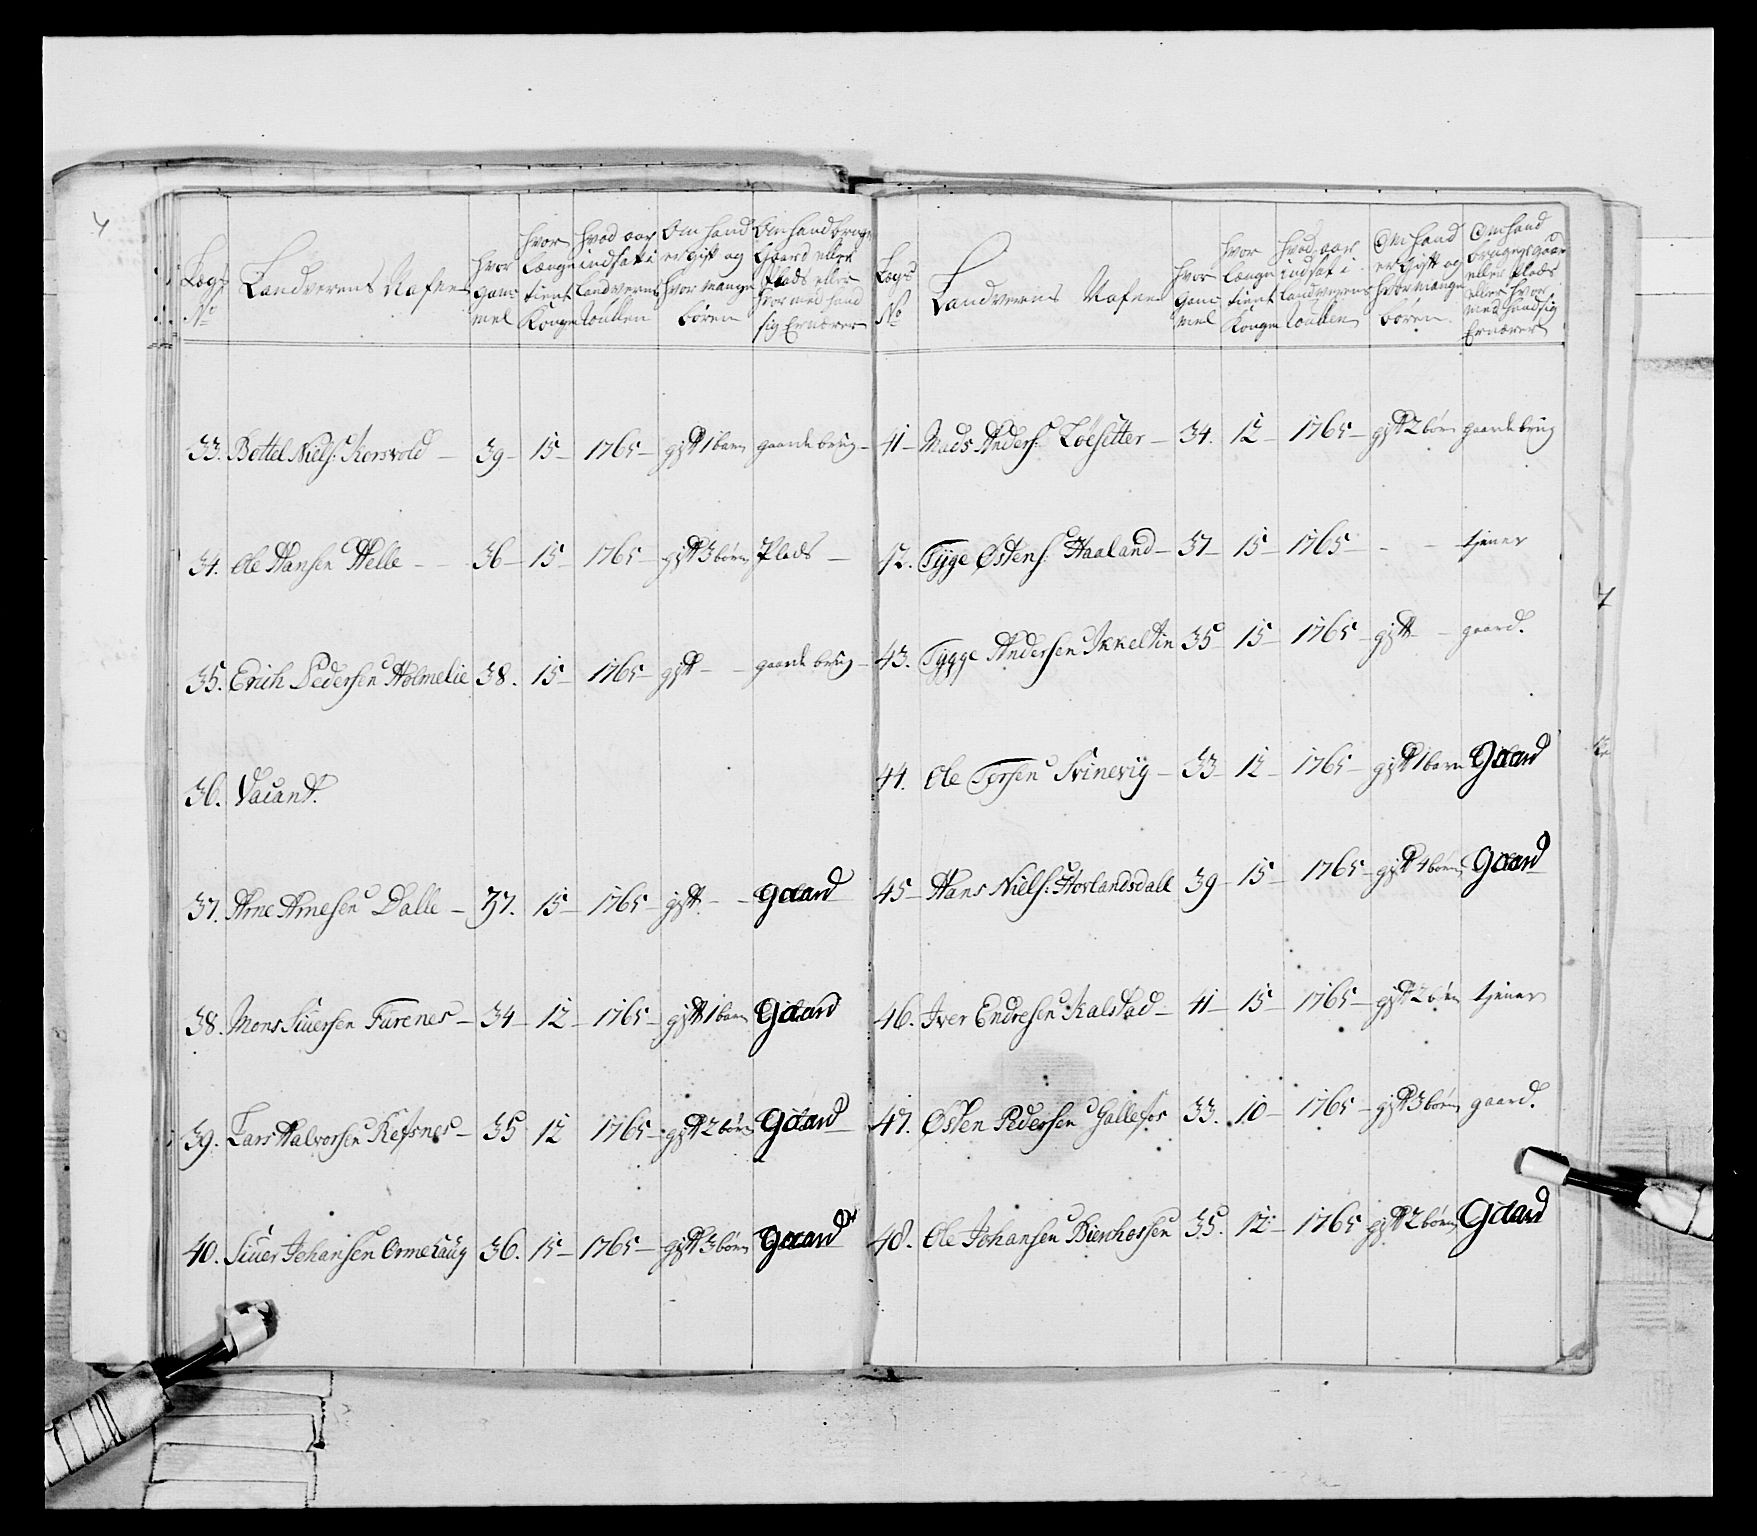 Lægs No
Landverens Nafne
hvor gammel
hvor længe tient Konge
hvad aar indsat i Landverns Roullen
Om hand er gift og hvor mange børen
Om hand bruger Gaard eller Plads eller hvor med hand sig Ernærer
33. Bottel Niels: Korsvold - 39 - 15 - 1765 - gift 1 barn gaarde brug -
34. Ole Hansen Helle - - 36 - 15 - 1765 - gift 3 børn Plads -
35. Erich Pedersen Holmelie 38. 15 - 1765 - gift - - gaarde brug -
36. Vacant.
37. Arne Arnesen Dalle - 37. 15 - 1765 - gift - - Gaard
38. Mons Siuersen Furenes - 34 - 12 - 1765 - gift 1 barn Gaard
39. Lars Halvorsen Refsnes - 35 12 1765 - gift 2 børn Gaard
40. Siuer Johansen Ormelaug 36. 15 - 1765 - gift 3 børn Gaard
Lægs No
Landverens Nafne
hvor gammel
hvor længe tient Konge
hvad aar indsat i Landverens Roullen
Om hand er Gift og hvor mange børen
Om hand bruger gaar eller Plads eller hvor med hand sig Ernærer
41 - Mads Anders: Løesetter - 34. 12 - 1765 - gift 2 børn gaarde brug
42. Tyge Østens: Haaland - 37 - 15 - 1765 - - - tjener
43. Tygge Andersen 35 - 15 - 1765 - gift - - gaard.
44. Ole Torsen Svinevig - 33 - 12 - 1765 - gift 1 barn Gaard
45 - Hans Niels: Hovlandsdall 39 - 15 - 1765 - gift 4 børn Gaard
46. Iver Endresen Kalstad - 41 - 15 - 1765 - gift 2 børn tjener
47. Østen Pedersen Gallefos 33. 10 - 1765 - gift 3 børn gaard.
48. Ole Johansen 35. 12 - 1765 gift 2 børn Gaard